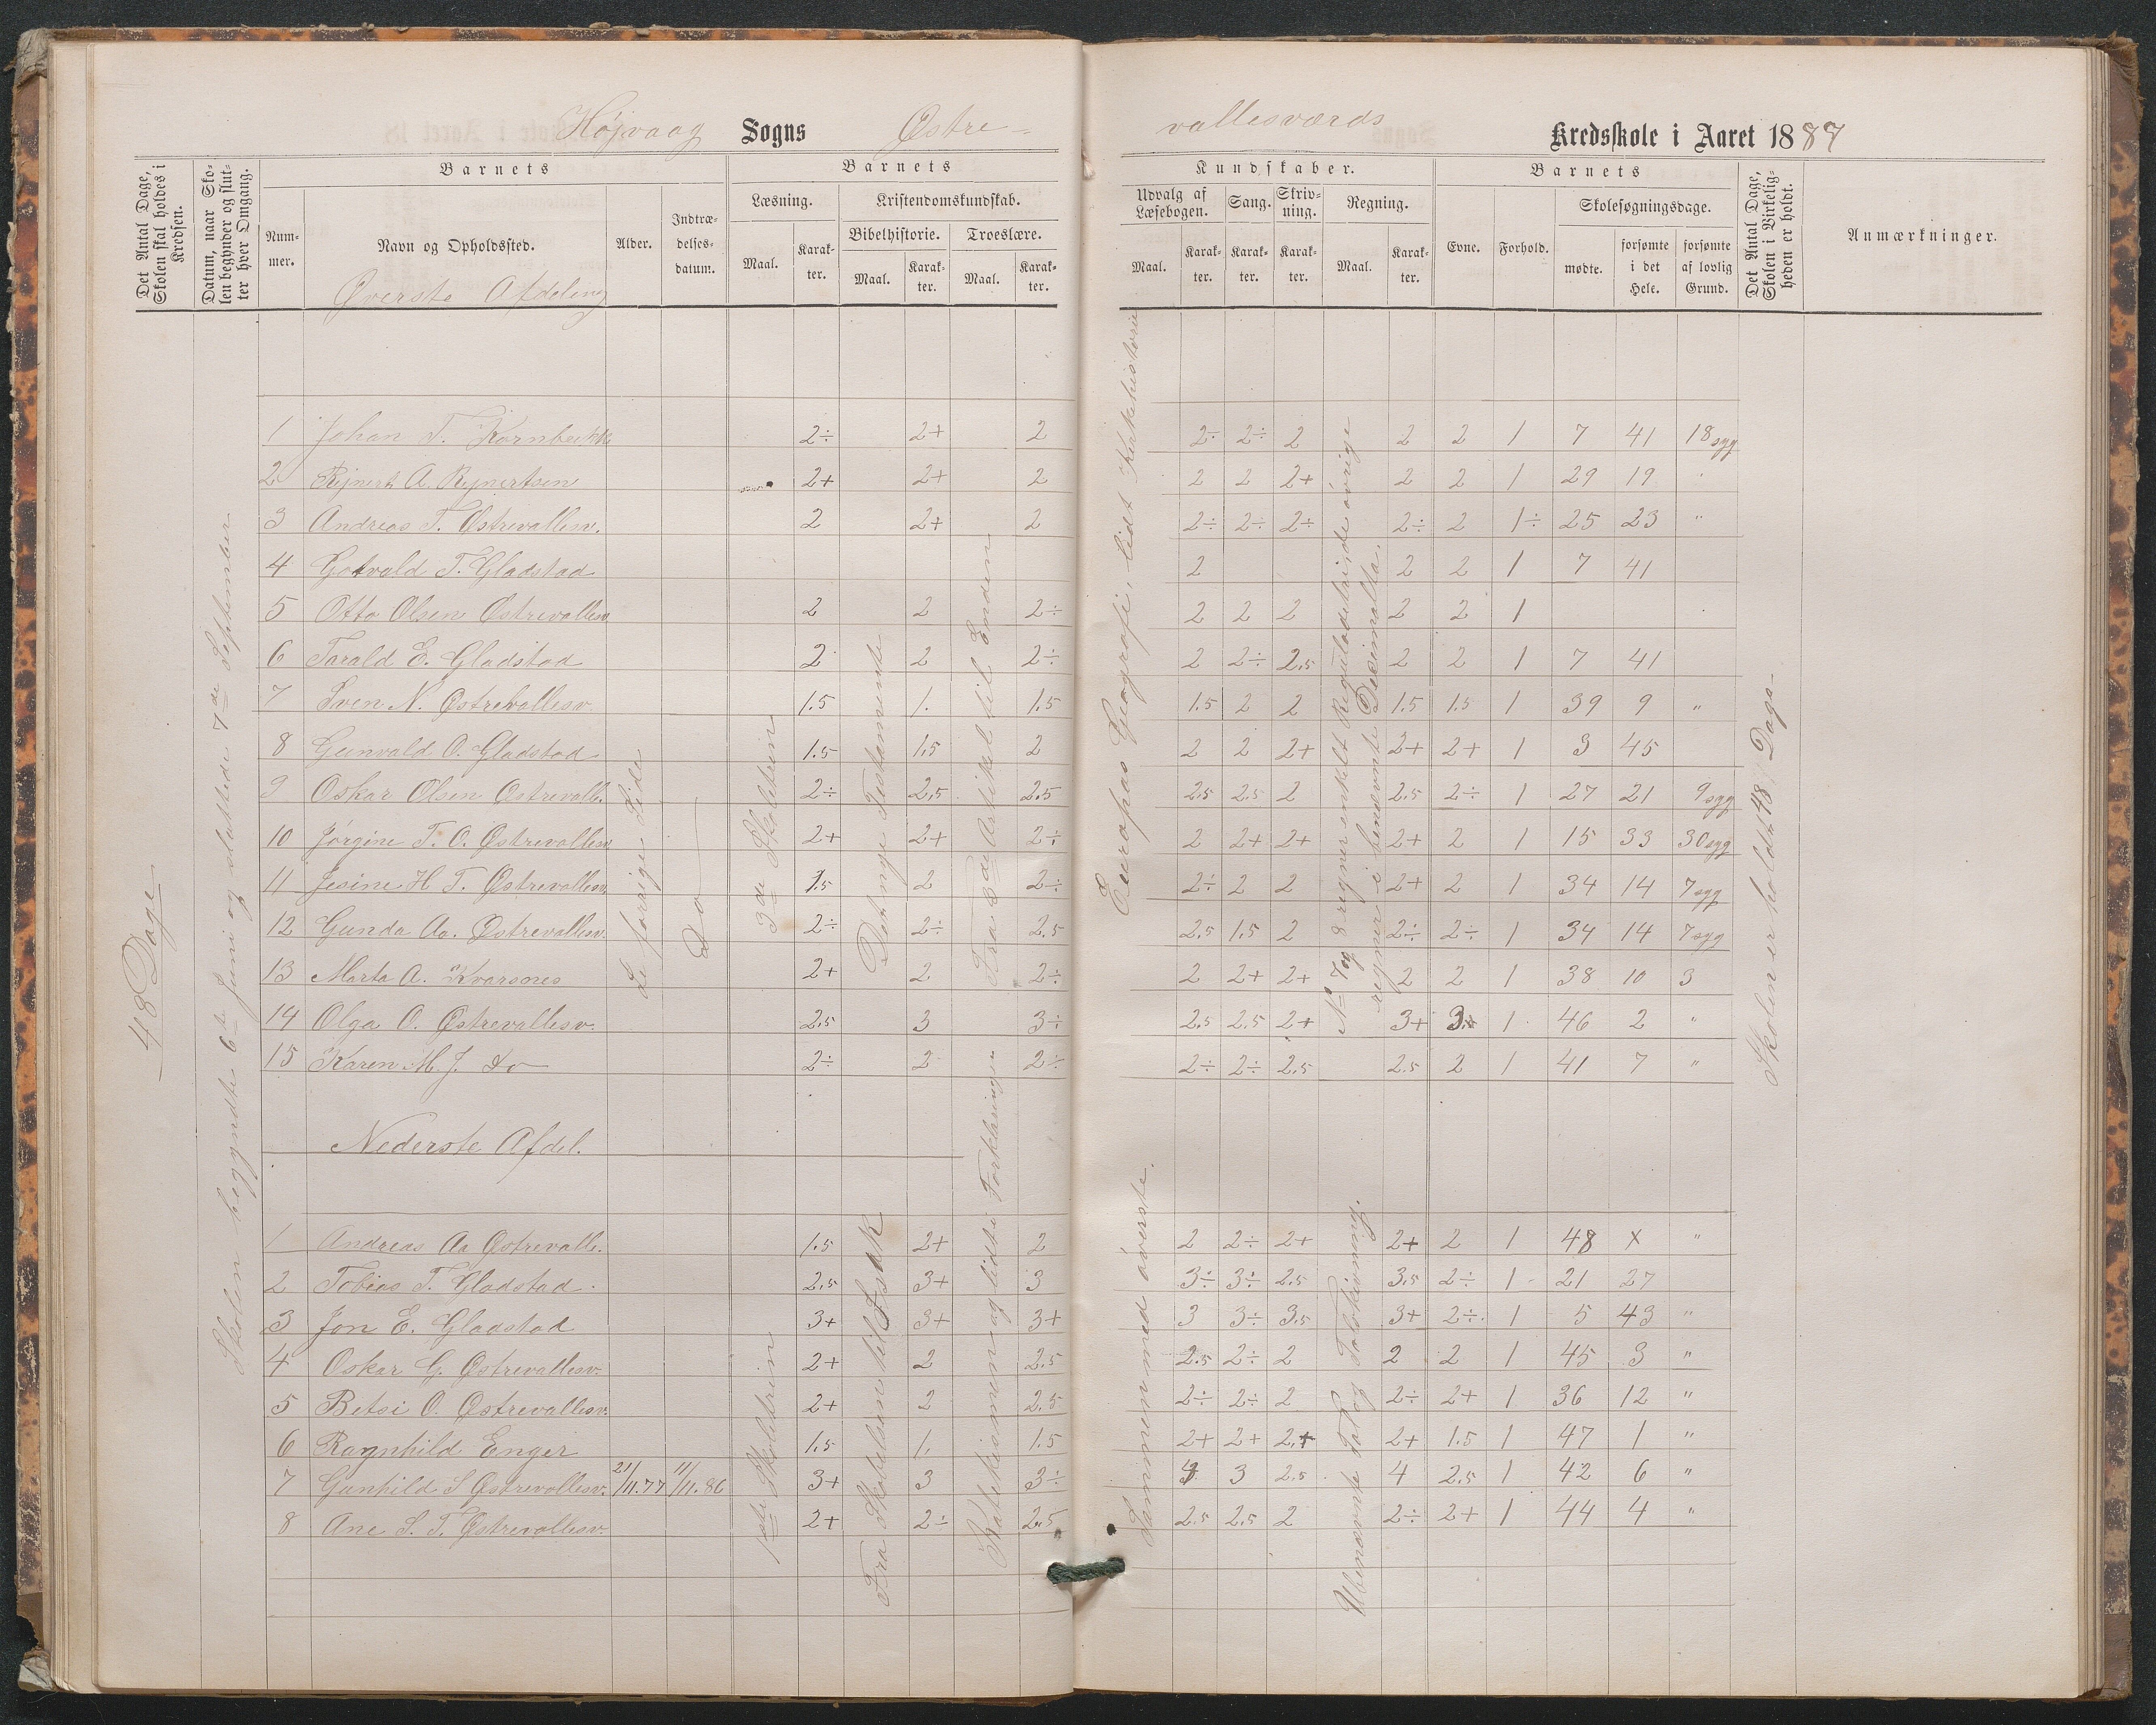 Højvaag Sogns Østre-
vallesværds Kredsskole i Aaret 1887
Det Antal Dage, Skolen skal holdes i Kredsen.
Datum, naar Skolen begynder og slutter hver Omgang.
Barnets
Nummer.
Navn og Opholdssted.
Alder.
Indtrædelsesdatum.
Barnets
Læsning.
Maal.
Karakter.
Kristendomskundskab.
Bibelhistorie.
Maal.
Karakter.
Troeslære.
Maal.
Karakter.
Kundskaber.
Udvalg af Læsebogen.
Maal.
Karakter.
Sang.
Karakter.
Skrivning.
Karakter.
Regning.
Maal.
Karakter.
Barnets
Evne.
Forhold.
Skolesøgningsdage.
mødte.
forsømte i det Hele.
forsømte af lovlig Grund.
Det Antal Dage, Skolen i Virkeligheden er holdt.
Anmærkninger.
Øverste Afdeling
48 Dage
Skolen begyndte 6te Juni og sluttede 7de September
Se forrige Side
Do
3de Skoletrin
Det nye Testamente
Fra 3de Artikel til Enden
Europas Geografi, lidt Kirkehistorie
No 7 og 8 regner enkelt Reguladetri, de øvrige
regner i benævnte Decimaltal.
Skolen er holdt 48 Dage
1 Johan T. Kornbækk 2÷ 2+ 2 2÷ 2÷ 2 2 2 1 7 41 18 syg
2 Rejnert A. Rejnertsen 2+ 2+ 2 2 2 2+ 2 2 1 29 19
3 Andreas T. Østrevallesv. 2 2+ 2 2÷ 2÷ 2÷ 2÷ 2 1÷ 25 23 "
4 Gotvald T. Gladstad 2 2 2 1 7 41
5 Otto Olsen Østrevallesv 2 2 2÷ 2 2 2 2 2 1
6 Tarald E. Gladstad 2 2 2÷ 2 2÷ 2.5 2 2 1 7 41
7 Sven N. Østrevallesv. 1.5 1. 1.5 1.5 2 2 1.5 1.5 1 39 9 "
8 Gunvald O. Gladstad 1.5 1.5 2 2 2 2+ 2+ 2+ 1 3 45
9 Oskar Olsen Østrevalle. 2÷ 2.5 2.5 2.5 2.5 2 2.5 2÷ 1 27 21 9 syg
10 Jørgine T. O. Østrevallesv 2+ 2+ 2÷ 2 2+ 2+ 2+ 2 1 15 33 30 syg
11 Jesine H T. Østrevallesv. 1.5 2 2÷ 2÷ 2 2 2+ 2 1 34 14 7 syg
12 Gunda Aa. Østrevallesv. 2÷ 2÷ 2.5 2.5 1.5 2 2÷ 2÷ 1 34 14 7 syg
13 Marta A. Kvarsnes 2+ 2 2÷ 2 2+ 2+ 2 2 1 38 10 3
14 Olga O. Østrevallesv. 2.5 3 3÷ 2.5 2.5 2+ 3+ 3+ 1 46 2 "
15 Karen M. J. do 2÷ 2 2÷ 2÷ 2÷ 2.5 2.5 2 1 41 7 "
Nederste Afdel.
1ste Skoletrin
Fra Skabelsen til Isak
Katekismen og lidt i Forklaringen
Sammen med øverste.
Ubenævnte Tal og Tavleøvning.
1 Andreas Aa Østrevalle. 1.5 2+ 2 2 2÷ 2+ 2+ 2 1 48 x "
2 Tobias T. Gladstad. 2.5 3+ 3 3÷ 3÷ 2.5 3.5 2÷ 1 21 27
3 Jon E. Gladstad 3+ 3+ 3+ 3 3÷ 3.5 3+ 2÷ 1 5 43 "
4 Oskar G. Østrevallesv. 2+ 2 2.5 2.5 2÷ 2 2 2 1 45 3 "
5 Betsi O. Østrevallesv. 2+ 2 2.5 2÷ 2÷ 2 2÷ 2+ 1 36 12 "
6 Ragnhild Enger 1.5 1. 1.5 2+ 2+ 2+ 2+ 1.5 1 47 1 "
7 Gunhild S Østrevallesv. 21/11.77 11/11.86 3+ 3 3÷ 3 3 2.5 4 2.5 1 42 6 "
8 Ane S. T. Østrevallesv. 2+ 2÷ 2.5 2.5 2.5 2 2÷ 2+ 1 44 4 "